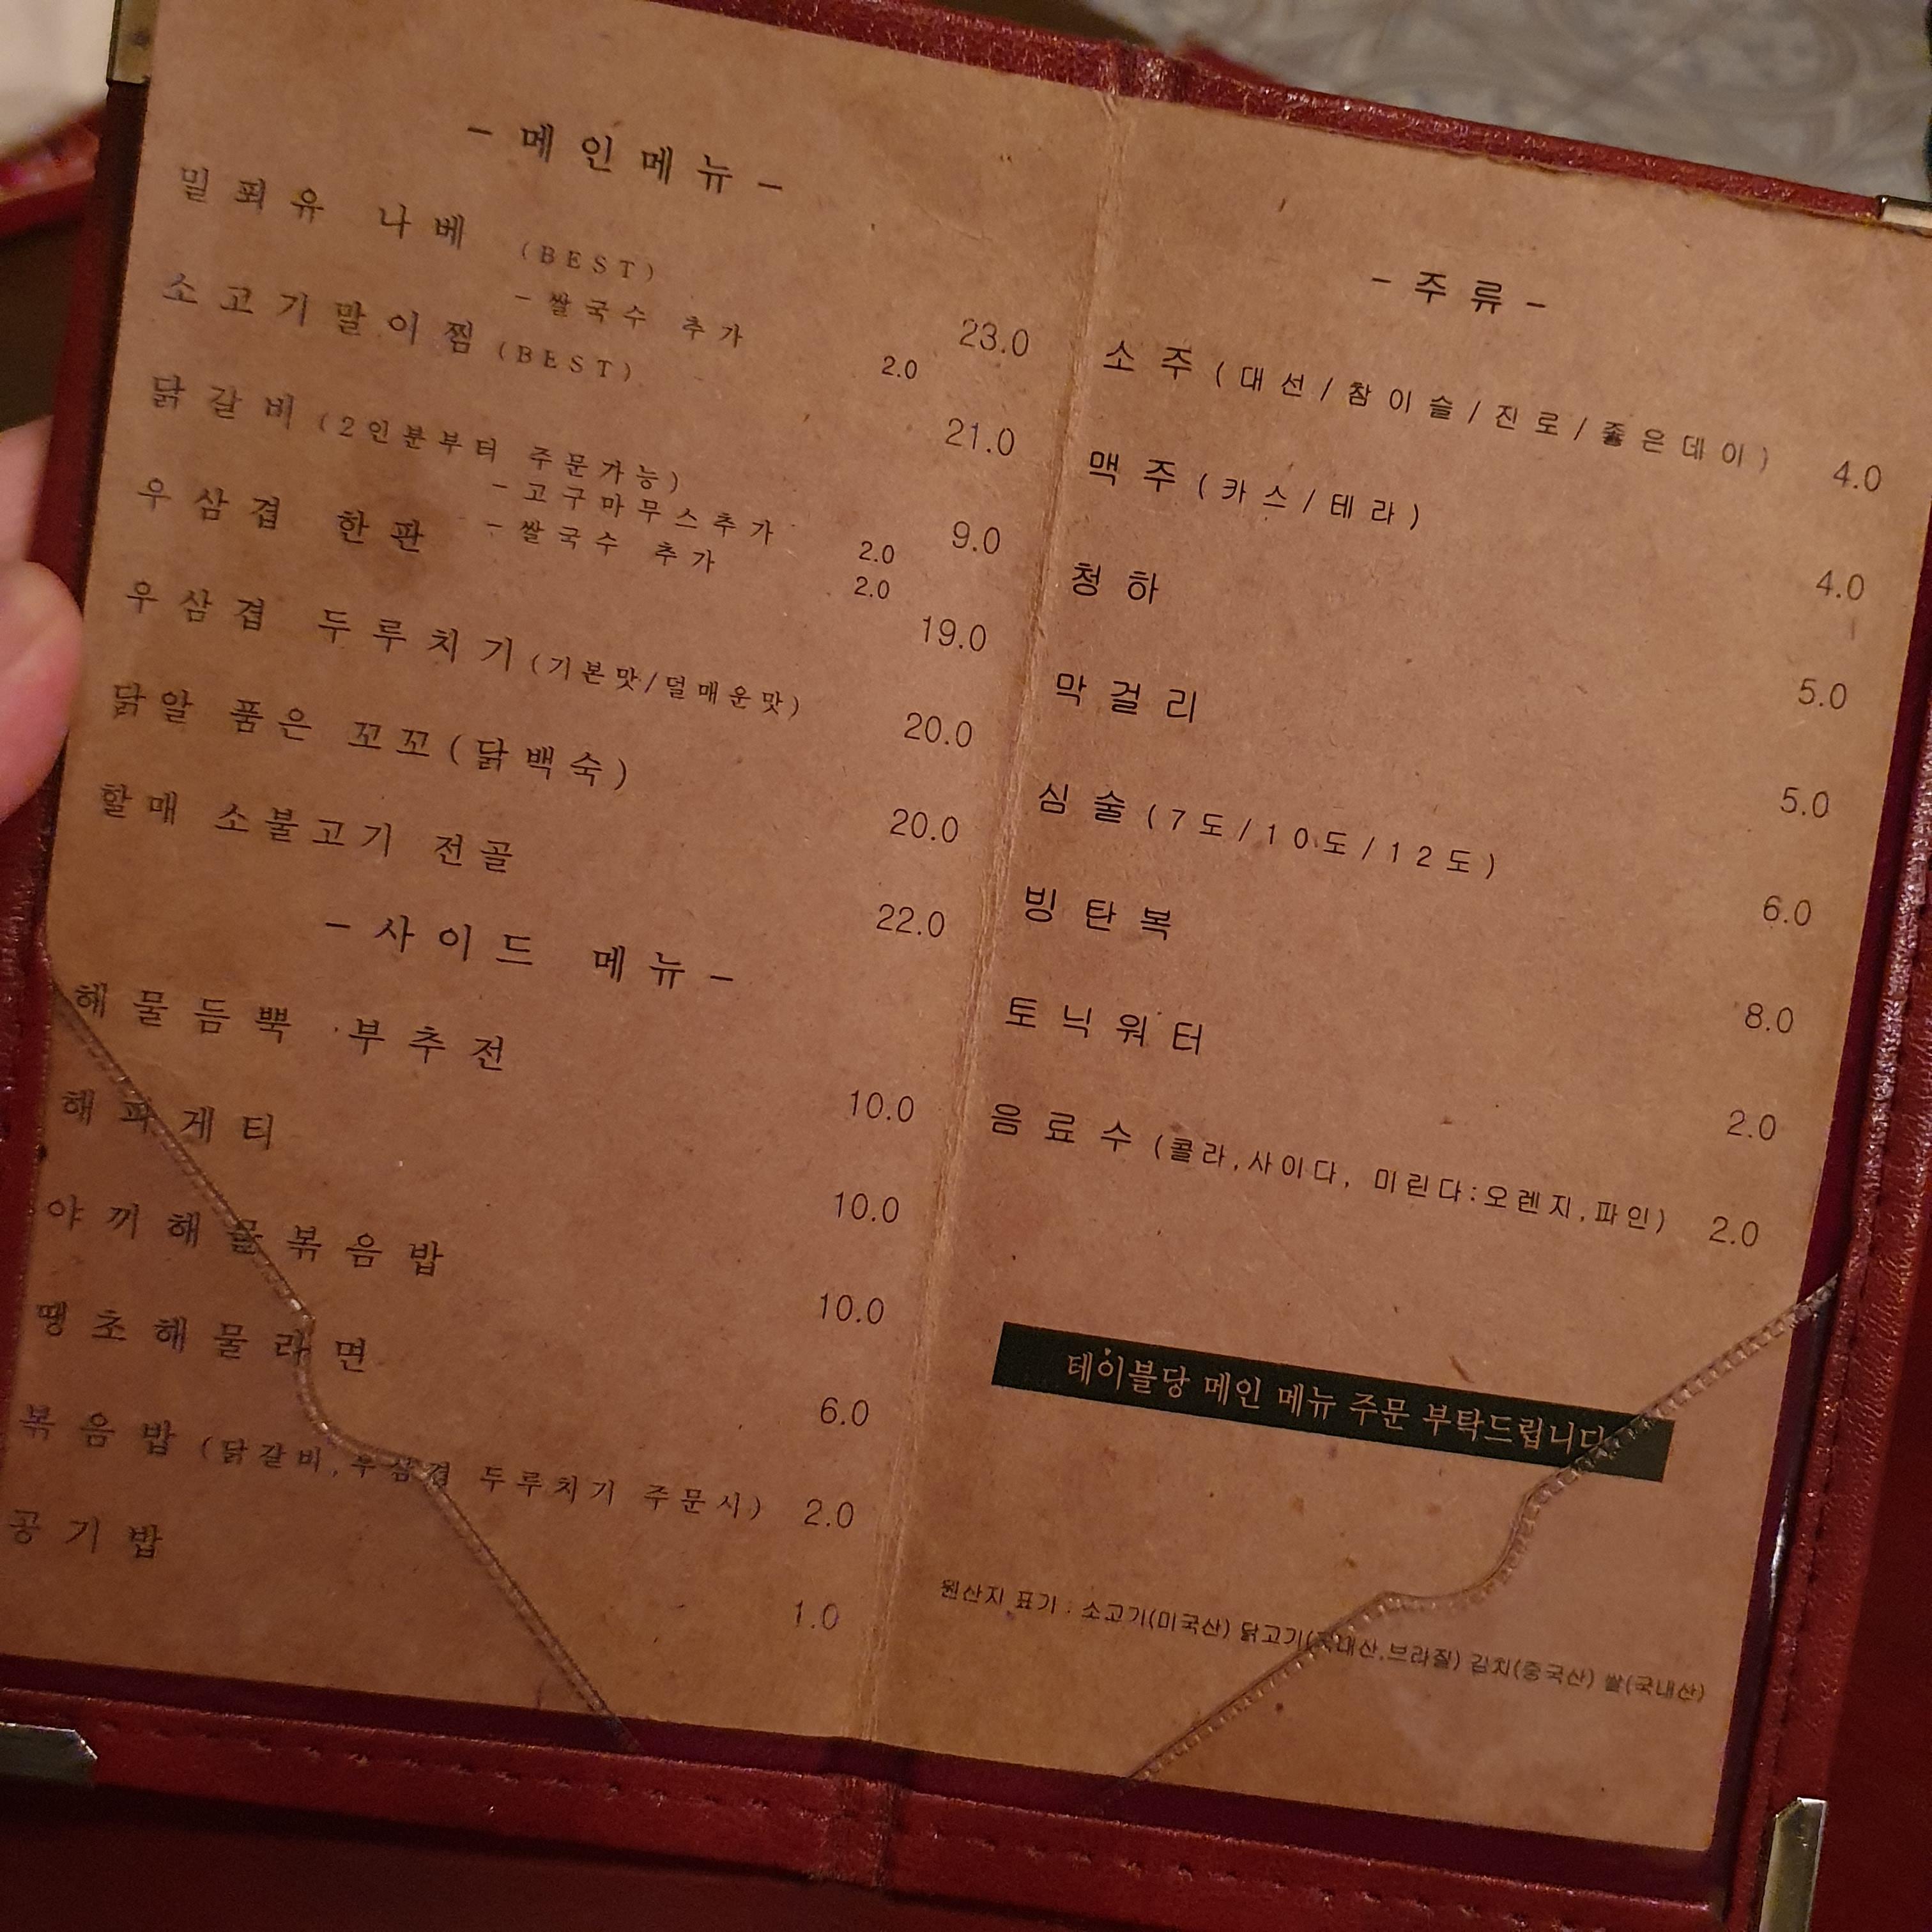 - 메인메뉴 -
밀푀유 나베 (BEST) 23.0
- 쌀국수 추가 2.0
소고기말이찜 (BEST) 21.0
닭갈비 (2인분부터 주문가능) 9.0
- 고구마무스추가 2.0
- 쌀국수 추가 2.0
우삼겹 한판 19.0
우삼겹 두루치기 (기본맛/덜매운맛) 20.0
닭알 품은 꼬꼬(닭백숙) 20.0
할매 소불고기 전골 22.0
- 사이드 메뉴 -
해물듬뿍 부추전 10.0
해파게티 10.0
야끼해물볶음밥 10.0
땡초해물라면 6.0
볶음밥 (닭갈비,우삼겹 두루치기 주문시) 2.0
공기밥 1.0
- 주류 -
소주 (대선/참이슬/진로/좋은데이) 4.0
맥주 (카스/테라) 4.0
청하 5.0
막걸리 5.0
심술 (7도/10도/12도) 6.0
빙탄복 8.0
토닉워터 2.0
음료수 (콜라,사이다, 미린다:오렌지,파인) 2.0
테이블당 메인 메뉴 주문 부탁드립니다.
원산지 표기 : 소고기(미국산) 닭고기(국내산,브라질) 김치(중국산) 쌀(국내산)